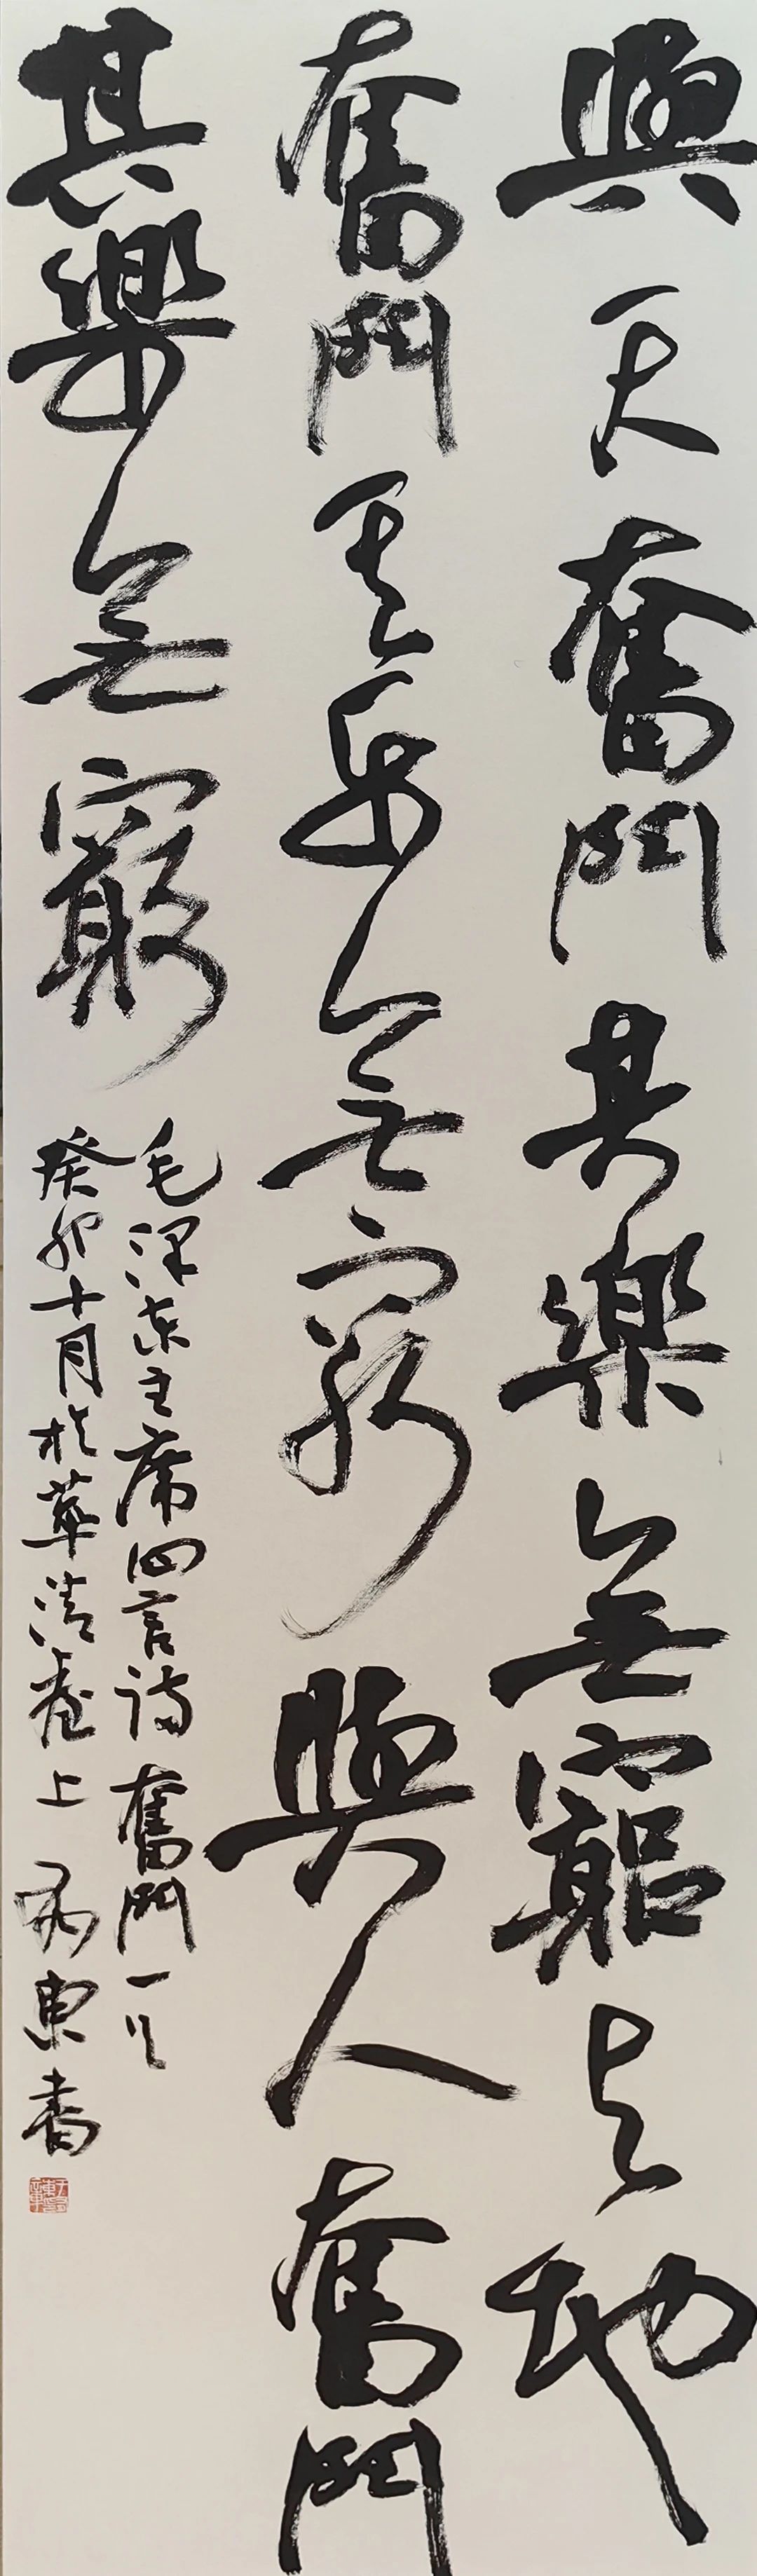 與天奮鬥其樂無窮與地
奮鬥其樂無窮與人奮鬥
其樂無窮
毛澤東主席四言詩奮鬥一首
癸卯十月於華清臺上 東書